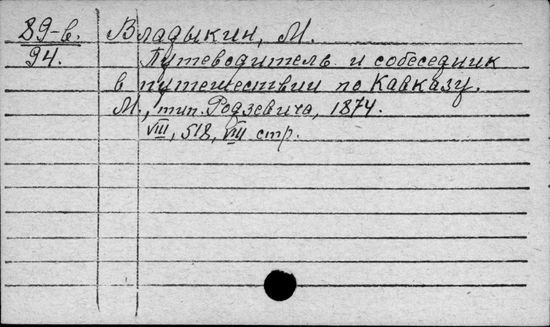 89-в. Владыкин, М.
94. Путеводитель и собеседник
в путешествии по Кавказу.
М., тип. Родзевича, 1874.
VIII, 518, VIII стр.